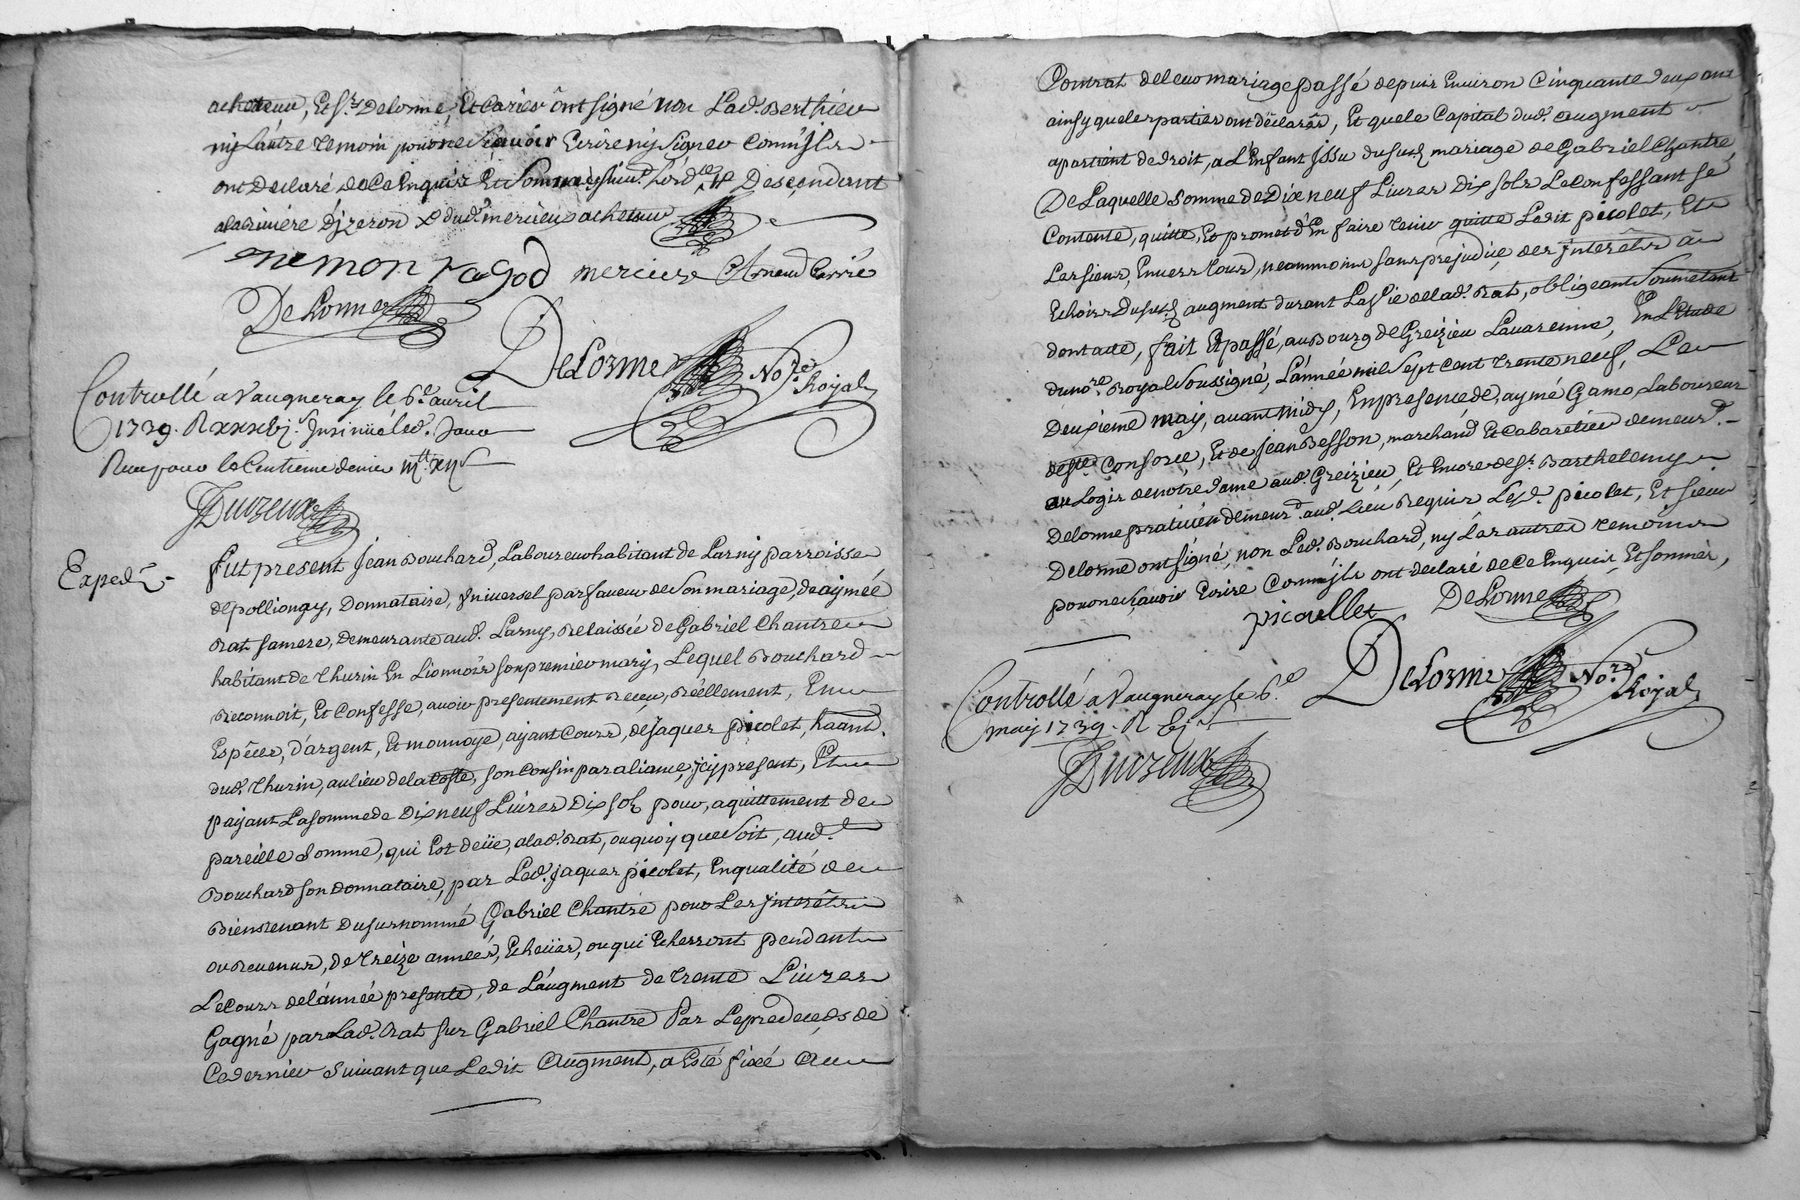 acheteur, Et sr. Delorme, Et Carier ônt signé non Lad. Berthieu
ny Lautre temoin pour ne scavoir Ecrire ny signer Comm'jls
ont declaré de ce Enquis Et sommés Descendant
a la riviere d'jzeron Dud. mercieu acheteur
enemon ragod mercieu Carrié
DeLorme
DeLorme Nore. Royal
Controllé a Vaugneray le 6e. avril
1739. R xxxbj s. Jnsinüé led. Jour
Receu pour le Centieme denier
Duizeux
Exped.
fut present Jean Bouchard, Laboureur habitant de Larny parroisse
de pollionay, Donnataire, Vniversel par faveur de son mariage, de aymée
Rat sa mere, demeurante aud. Larny, Relaissée de Gabriel Chantre
habitant de Thurin En Lionnois son premier mary, Lequel Bouchard
Reconnoit, Et Confesse, avoir presentement Receu, Réellement, En
Espêces, d'argent, Et monnoye, ayant Cours, de Jaques picolet, haant.
dud. Thurin, au lieu de la Coste, son Cousin par aliance, jcy present, Et
paijant La somme de Dix neuf Livres Dix sols pour, aquittement de
pareille somme, qui Est deüe, a lad. Rat, ou quoy que soit, aud.
Bouchard son donnataire, par Led. Jaques picolet, En qualité de
Bientenant du surnommé Gabriel Chantre pour Les jnterêts
ou Revenus, de Treize années, Echeües, ou qui Echerront pendant
Le Cours de l'année presente, de L'augment de Trente Livres
Gagné par Lad. Rat sur Gabriel Chantre Par Le predeceds de
Ce dernier suivant que Ledit Augment, a Esté fixé au
Contrat de leur mariage passé depuis Environ Cinquante deux ans
ainsy que les parties ont déclarés, Et que le Capital dud. augment
apartient de droit, a L'Enfant Jssu du sus.d mariage de Gabriel Chantre
De Laquelle somme de Dix neuf Livres Dix sols Le Confessant se
Contente, quitte, Et promet d'En faire tenir quitte Ledit picolet, Et
Les siens, Envers tous, neammoins sans prejudice des jnterêts à
Echoir du sus.d augment durant La vie de lad. Rat, obligeant soumetant
dont acte, fait Et passé, au Bourg de Greizieu Lavarenne, En L'Etude
du nore. Royal soussigné, L'année mil sept Cent trente neuf, Le
Deuxieme may, avant midy, En presence de, aymé Gamo, Laboureur
de Ste. Consorce, Et de Jean Besson, marchand Et Cabaretier demeur.
au Logis de notre dame aud. Greizieu, Et Encore de sr. Barthelemy
Delorme praticien demeur.t aud. Lieu Requis Lesd. picolet, Et sieur
Delorme ont signé, non Led. Bouchard, ny Les autres temoins
pour ne scavoir Ecrire Comm'jls ont declaré de Ce Enquis, Et sommés,
picollet DeLorme
DeLorme Nore. Royal
Controllé a Vaugneray le 6e.
may 1739. R bj s
Duizeux